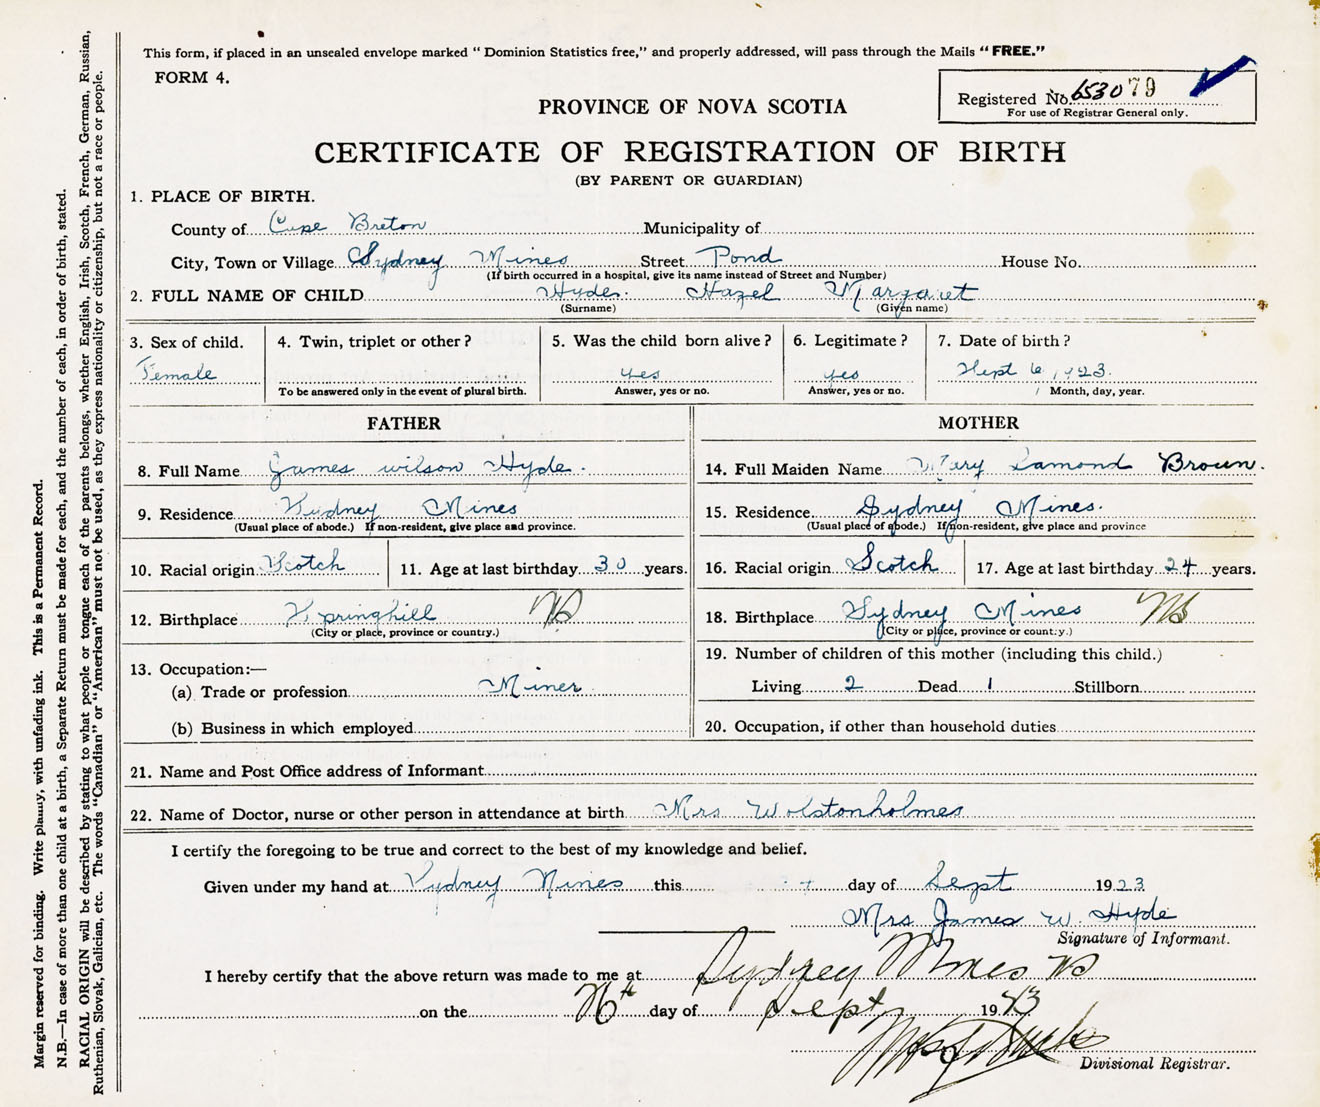 This form, if placed in an unsealed envelope marked "Dominion Statistics free," and properly addressed, will pass through the Mails "FREE."
FORM 4.
Registered No. 653079
For use of Registrar General only.
PROVINCE OF NOVA SCOTIA
CERTIFICATE OF REGISTRATION OF BIRTH
(BY PARENT OR GUARDIAN)
1. PLACE OF BIRTH.
County of Cape Breton Municipality of
City, Town or Village Sydney Mines Street Pond House No.
(If birth occurred in a hospital, give its name instead of Street and Number)
2. FULL NAME OF CHILD Hyde. Hazel Margaret
(Surname) (Given name)
3. Sex of child. 4. Twin, triplet or other? 5. Was the child born alive? 6. Legitimate? 7. Date of birth?
Female yes yes Sept 6, 1923.
To be answered only in the event of plural birth. Answer, yes or no. Answer, yes or no. Month, day, year.
FATHER MOTHER
8. Full Name James wilson Hyde. 14. Full Maiden Name Mary Lamond Brown.
9. Residence Sydney Mines 15. Residence Sydney Mines.
(Usual place of abode.) If non-resident, give place and province. (Usual place of abode.) If non-resident, give place and province
10. Racial origin Scotch 11. Age at last birthday 30 years. 16. Racial origin Scotch 17. Age at last birthday 24 years.
12. Birthplace Springhill NS 18. Birthplace Sydney Mines NS
(City or place, province or country.) (City or place, province or country.)
13. Occupation:— 19. Number of children of this mother (including this child.)
(a) Trade or profession Miner Living 2 Dead 1 Stillborn
(b) Business in which employed 20. Occupation, if other than household duties
21. Name and Post Office address of Informant
22. Name of Doctor, nurse or other person in attendance at birth Mrs Wolstonholmes
I certify the foregoing to be true and correct to the best of my knowledge and belief.
Given under my hand at Sydney Mines this day of Sept 1923
Mrs James W. Hyde
Signature of Informant.
I hereby certify that the above return was made to me at Sydney Mines NS
on the 26th day of Sept 1923
Divisional Registrar.
Margin reserved for binding. Write plainly, with unfading ink. This is a Permanent Record.
N.B.—In case of more than one child at a birth, a Separate Return must be made for each, and the number of each, in order of birth, stated.
RACIAL ORIGIN will be described by stating to what people or tongue each of the parents belongs, whether English, Irish, Scotch, French, German, Russian,
Ruthenian, Slovak, Galician, etc. The words "Canadian" or "American" must not be used, as they express nationality or citizenship, but not a race or people.